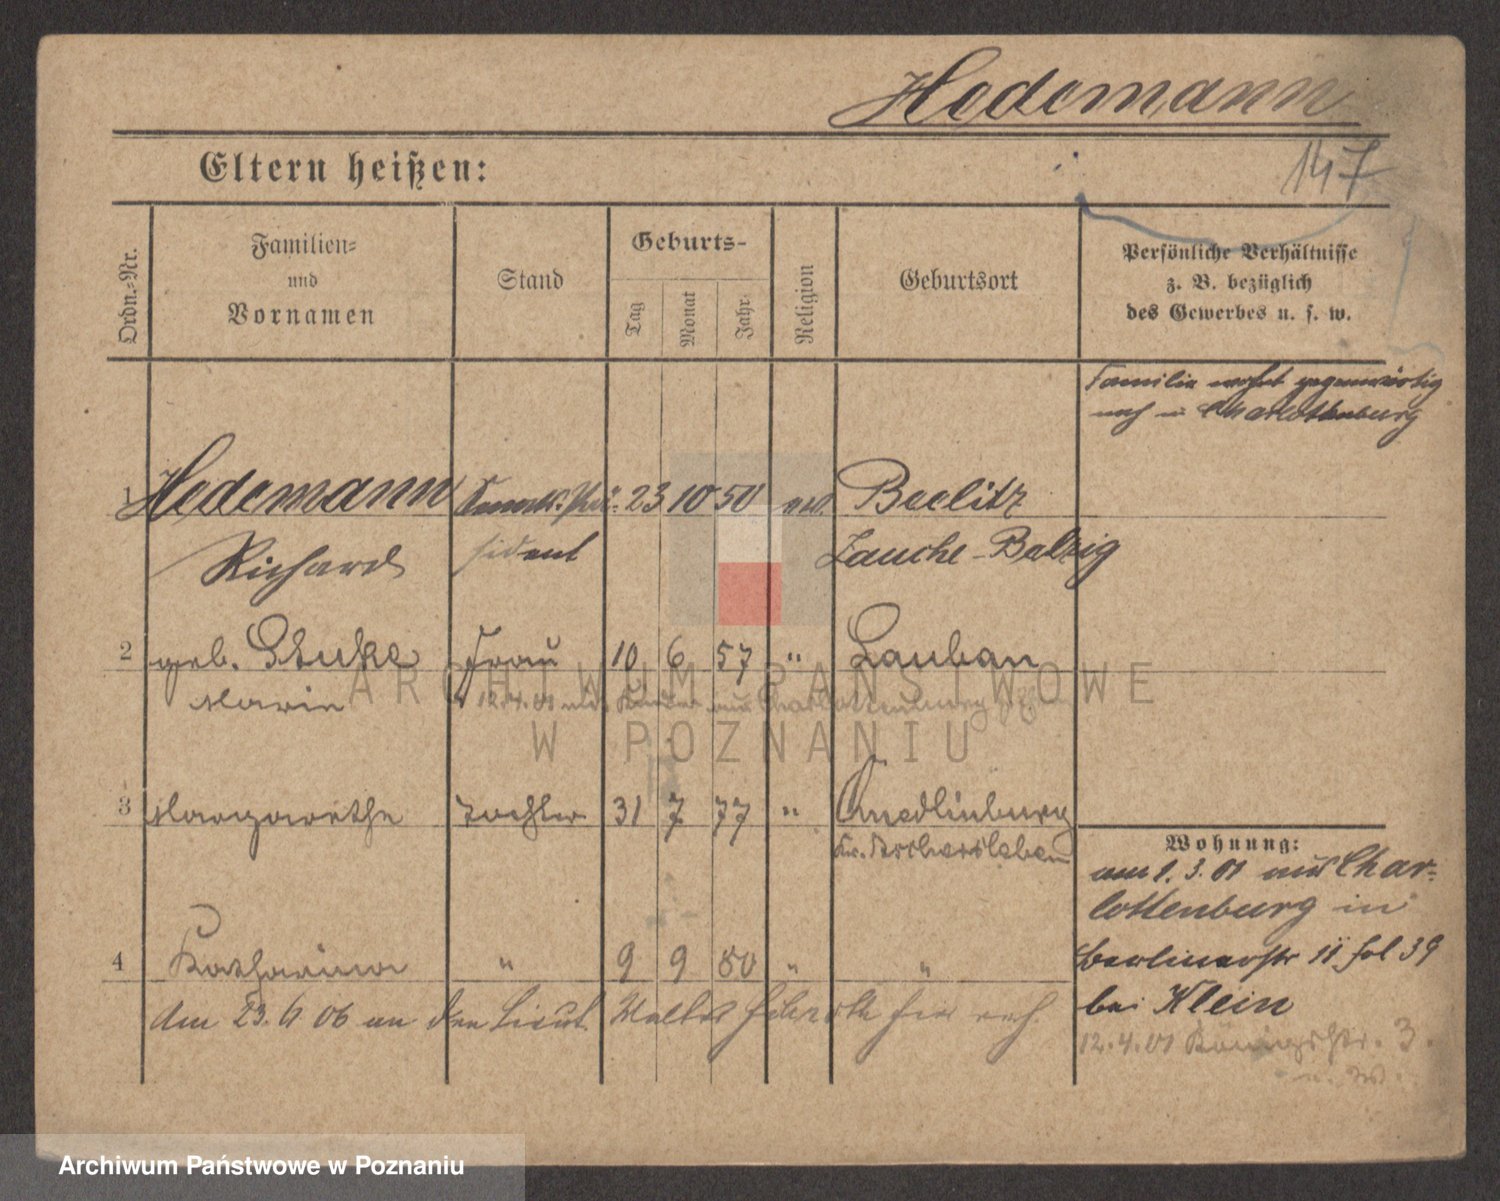 Hedemann
147
Eltern heißen:
Ordn.-Nr.
Familien-
und
Vornamen
Stand
Geburts-
Tag
Monat
Jahr
Religion
Geburtsort
Persönliche Verhältnisse
z. B. bezüglich
des Gewerbes u. s. w.
Familie wohnt gegenwärtig
noch in Charlottenburg
1 Hedemann 23 10 50 ev. Beelitz
Richard sident Zauche-Belzig
2 geb. Frau 10 6 57 " Lauban
Marie 12.4.01 aus Charlottenburg
3 Margarethe Tochter 31 7 77 " Quedlinburg
Kr. Aschersleben
4 Katharina " 9 9 80 " "
Am 23. 6 06 an den Lieut. Walter
Wohnung:
am 1.3.01 aus Char-
lottenburg in
Berlinerstr 11 fol 39
bei Klein
12.4.01 Königstr. 3.
ARCHIWUM PAŃSTWOWE
W POZNANIU
Archiwum Państwowe w Poznaniu